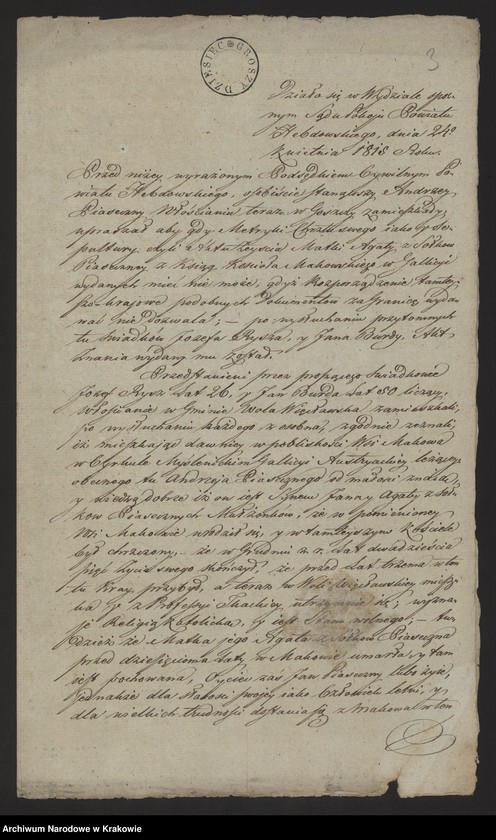 DZIESIĘĆ GROSZY
3
Działo się w Wydziale spor-
nym Sądu Pokoju Powiatu
Hebdowskiego, dnia 24º
Kwietnia 1818 Roku.
Przed niżey wyrażonym Podsędkiem Cywilnym Po-
wiatu Hebdowskiego, osobiście stanąwszy Andrzey
Piaseczny Włościanin teraz w zamieszkały,
upraszał aby gdy Metryki Chrztu swego iako y de-
paktury czyli Aktu Zeyścia Matki Agaty z Sołków
Piaseczney z Ksiąg Kościoła Makowskiego w Galicyi
wydanych mieć nie może, gdyż Rozporządzenia tamtey-
szo kraiowe podobnych Dokumentów za Granicę wyda-
wać nie dozwala; — po wysłuchaniu przytomnych
tu Świadków Jozefa Rysza, y Jana Burdy, Akt
Znania wydany mu został.
Przedstawieni przez proszącego Świadkowie
Jozef Rysz Lat 26, y Jan Burda Lat 50 liczący,
Włościanie w Gminie Wola Więcławska zamieszkali,
po wysłuchaniu każdego z osobna, zgodnie zeznali,
iż mieszkaiąc dawniey w pobliskości Wsi Makowa
w Cyrkule Myślenickim Galicyi Austryackiey leżącey,
obecnego tu Andrzeja Piasecznego od małości znali,
y wiedzą dobrze iż on iest Synem Jana y Agaty z Soł-
ków Piasecznych Małżonków, że w spomnioney
Wsi Makowie urodził się, y w tamteyszym Kościele
był chrzczony, — że w Grudniu z. r. Lat dwadzieścia
pięć życia swego skończył, że przed Lat trzema w ten
tu Kray przybył, a teraz w Woli Więcławskiey miesz-
ka y z Profesyi Tkackiey utrzymuie się; wyzna-
ie Religią Katolicką, y iest Stanu wolnego; — twi-
dzież że Matka jego Agata z Sołków Piaseczna
przed dziesięcioma laty w Makowie umarła, y tam
iest pochowana, Oyciec zas Jan Piaseczny lubo żyie,
jednakże dla słabości swoiey iako Człowiek letni, y
dla wielkich trudności dostania się z Makowa w ten
Archiwum Narodowe w Krakowie